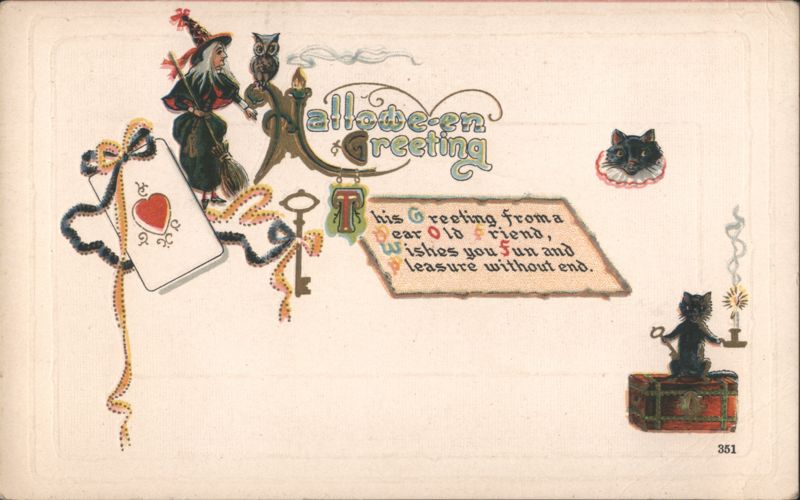 Hallowe-en
Greeting
This Greeting from a
Dear Old Friend,
Wishes you Fun and
Pleasure without end.
351